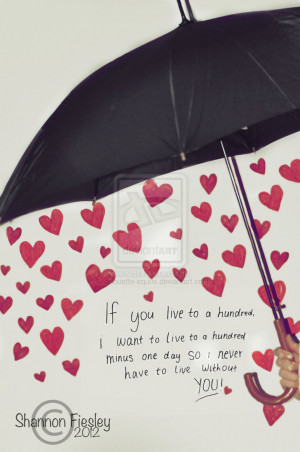 deviantART
If you live to a hundred,
i want to live to a hundred
minus one day so i never
have to live without
YOU!
©
Shannon Fiesley
2012